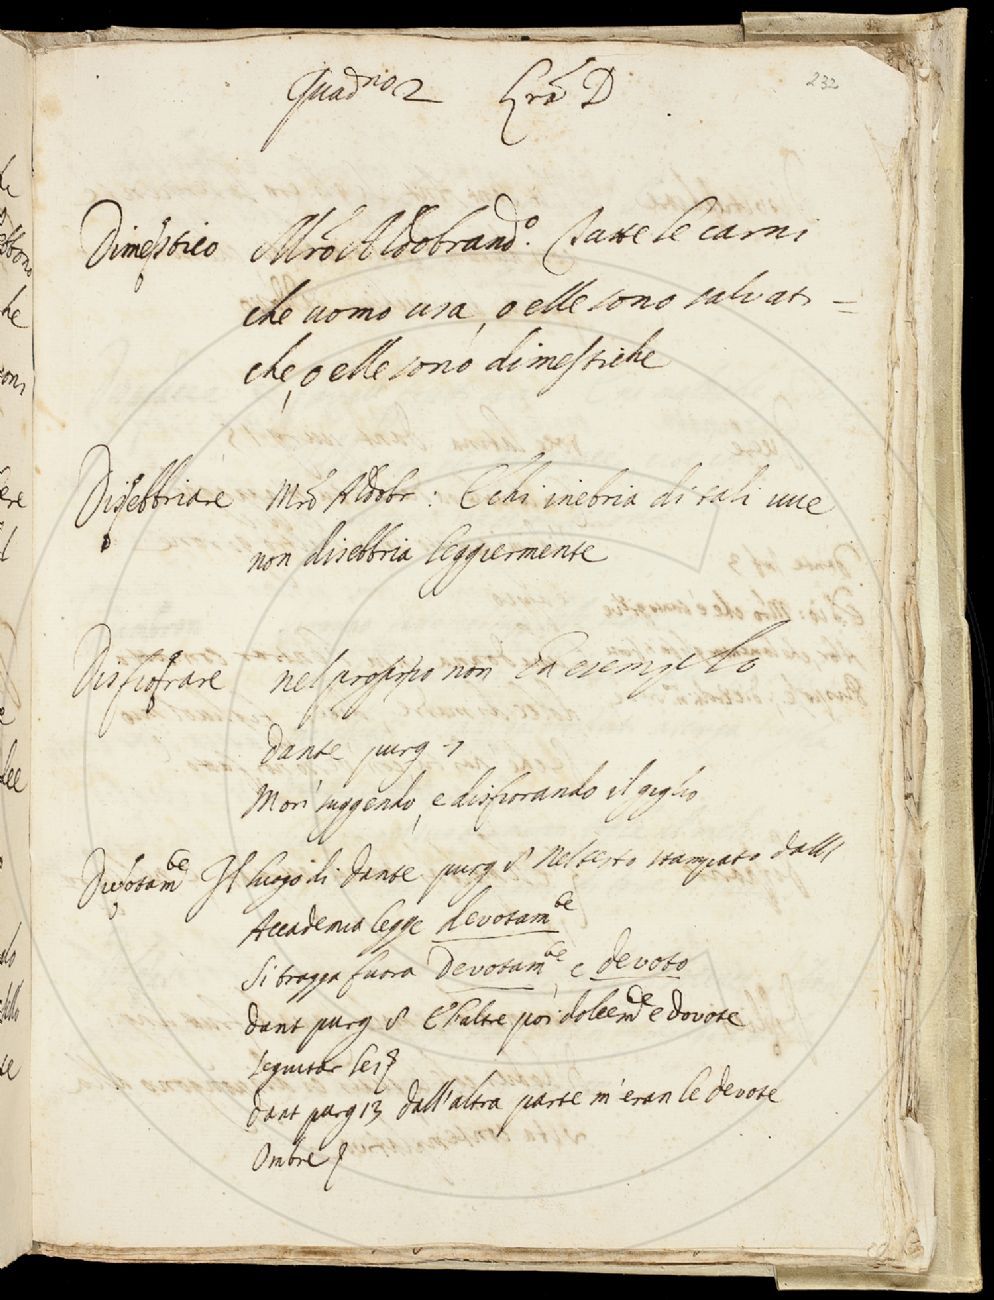 Quadno 2 Lra D
232
Dimestico Mro Aldobrando. Tutte le carni
che uomo usa, o elle sono salvati=
che, o elle sono dimestiche
Disebbriare Mro Aldobr: E chi inebria di tali uve
non disebbria leggiermente
Disfiorare nel proprio non ha esemplo
dante purg 7
Mori fuggendo, e disfiorando il giglio
Divotamte Il luogo di dante purg 8 nel testo stampato dall
Accademia legge devotamte
Si tragga fuora Devotamte e devoto
dant purg 8 E l'altre poi dolcemte e devote
seguitar lei
dant purg 13 dall'altra parte m'eran le devote
Ombre